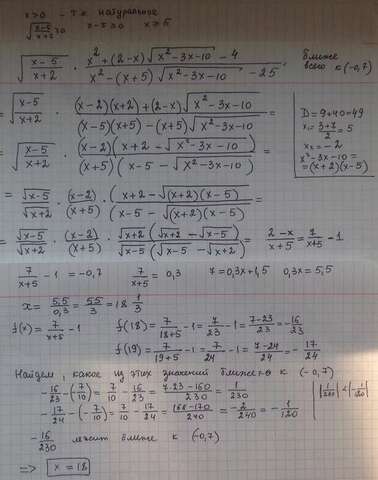 x>0 - т.к натуральное
√((x-5)/(x+2)) ≥0 x-5≥0 x≥5
√((x-5)/(x+2)) · (x²+(2-x)√(x²-3x-10) -4)/(x²-(x+5)√(x²-3x-10) -25) ближе всего к (-0,7)
= √((x-5)/(x+2)) · ((x-2)(x+2)+(2-x)√(x²-3x-10))/((x-5)(x+5)-(x+5)√(x²-3x-10)) =
D=9+40=49
x₁=(3+7)/2=5
x₂=-2
x²-3x-10=
=(x+2)(x-5)
= √((x-5)/(x+2)) · ((x-2)(x+2-√(x²-3x-10)))/((x+5)(x-5-√(x²-3x-10))) =
= √(x-5)/√(x+2) · (x-2)/(x+5) · (x+2-√((x+2)(x-5)))/(x-5-√((x+2)(x-5))) =
= √(x-5)/√(x+2) · (x-2)/(x+5) · (√(x+2)(√(x+2)-√(x-5)))/(√(x-5)(√(x-5)-√(x+2))) = (2-x)/(x+5) = 7/(x+5) -1
7/(x+5) -1 = -0,7 7/(x+5) = 0,3 7=0,3x+1,5 0,3x=5,5
x= 5,5/0,3 = 55/3 = 18 1/3
f(x)= 7/(x+5) -1 f(18)= 7/(18+5) -1= 7/23 -1= (7-23)/23 = -16/23
f(19)= 7/(19+5) -1= 7/24 -1= (7-24)/24 = -17/24
Найдем, какое из этих значений ближе к (-0,7)
-16/23 -(-7/10)= 7/10 - 16/23 = (7·23-160)/230 = 1/230
-17/24 -(-7/10)= 7/10 - 17/24 = (168-170)/240 = -2/240 = -1/120
|1/230| < |-1/120|
-16/230 лежит ближе к (-0,7)
=> x=18